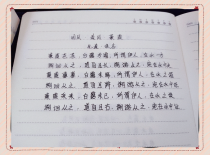 国风 秦风 蒹葭
蒹葭苍苍,白露为霜。所谓伊人,在水一方。
溯洄从之,道阻且长。溯游从之,宛在水中央。
蒹葭萋萋,白露未晞。所谓伊人,在水之湄。
溯洄从之,道阻且跻。溯游从之,宛在水中坻。
蒹葭采采,白露未已。所谓伊人,在水之涘。
溯洄从之,道阻且右。溯游从之,宛在水中沚。